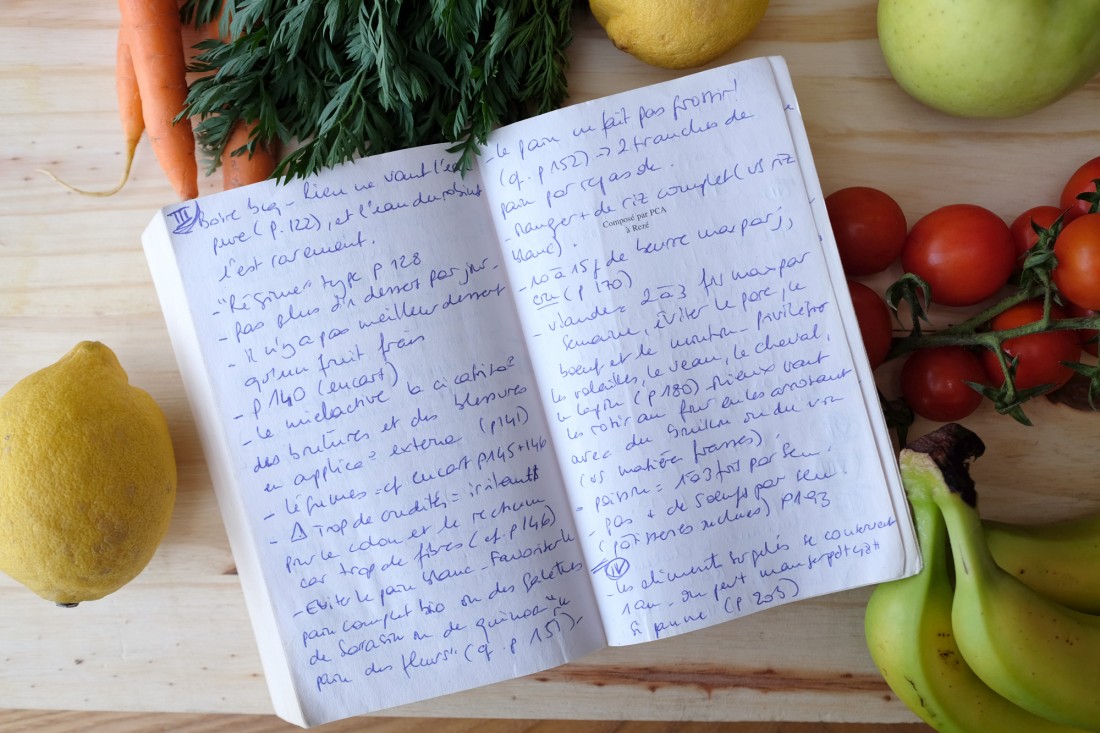 III Boire bcp - Rien ne vaut l'eau
pure (p. 122), et l'eau du robinet
l'est rarement.
- "Régime" type p 128
- pas plus d'un dessert par jour.
- il n'y a pas meilleur dessert
qu'un fruit frais
- p 140 (encart)
- Le miel active la cicatrisa°
des brûlures et des blessures
en applica° externe (p141)
- Légumes = cf encart p145+146
- ⚠ Trop de crudités = irritant
pour le colon et le rectum
car trop de fibres (cf. p 146)
- Eviter le pain blanc - Favoriser le
pain complet bio ou des galettes
de sarrasin ou de quinoa
pain des fleurs" (cf. p 151).
- Le pain ne fait pas grossir!
(cf. p 152) → 2 tranches de
pain par repas
- Manger + de riz complet (vs riz
blanc).
Composé par PCA
à Rezé
- 10 à 15 g de beurre max par j,
cru (p 170)
- viandes 2 à 3 fois max par
semaine, éviter le porc, le
boeuf et le mouton - Privilégier
les volailles, le veau, le cheval,
le lapin (p 180) Mieux vaut
les rôtir au four en les arrosant
avec du bouillon ou du vin
(vs matière grasses).
- poisson = 1 à 3 fois par sem.
- pas + de 5 oeufs par sem.
(pâtisseries incluses) p193
IV
- Les aliments surgelés se conservent
1 an - on peut manger
si jaune (p 203)